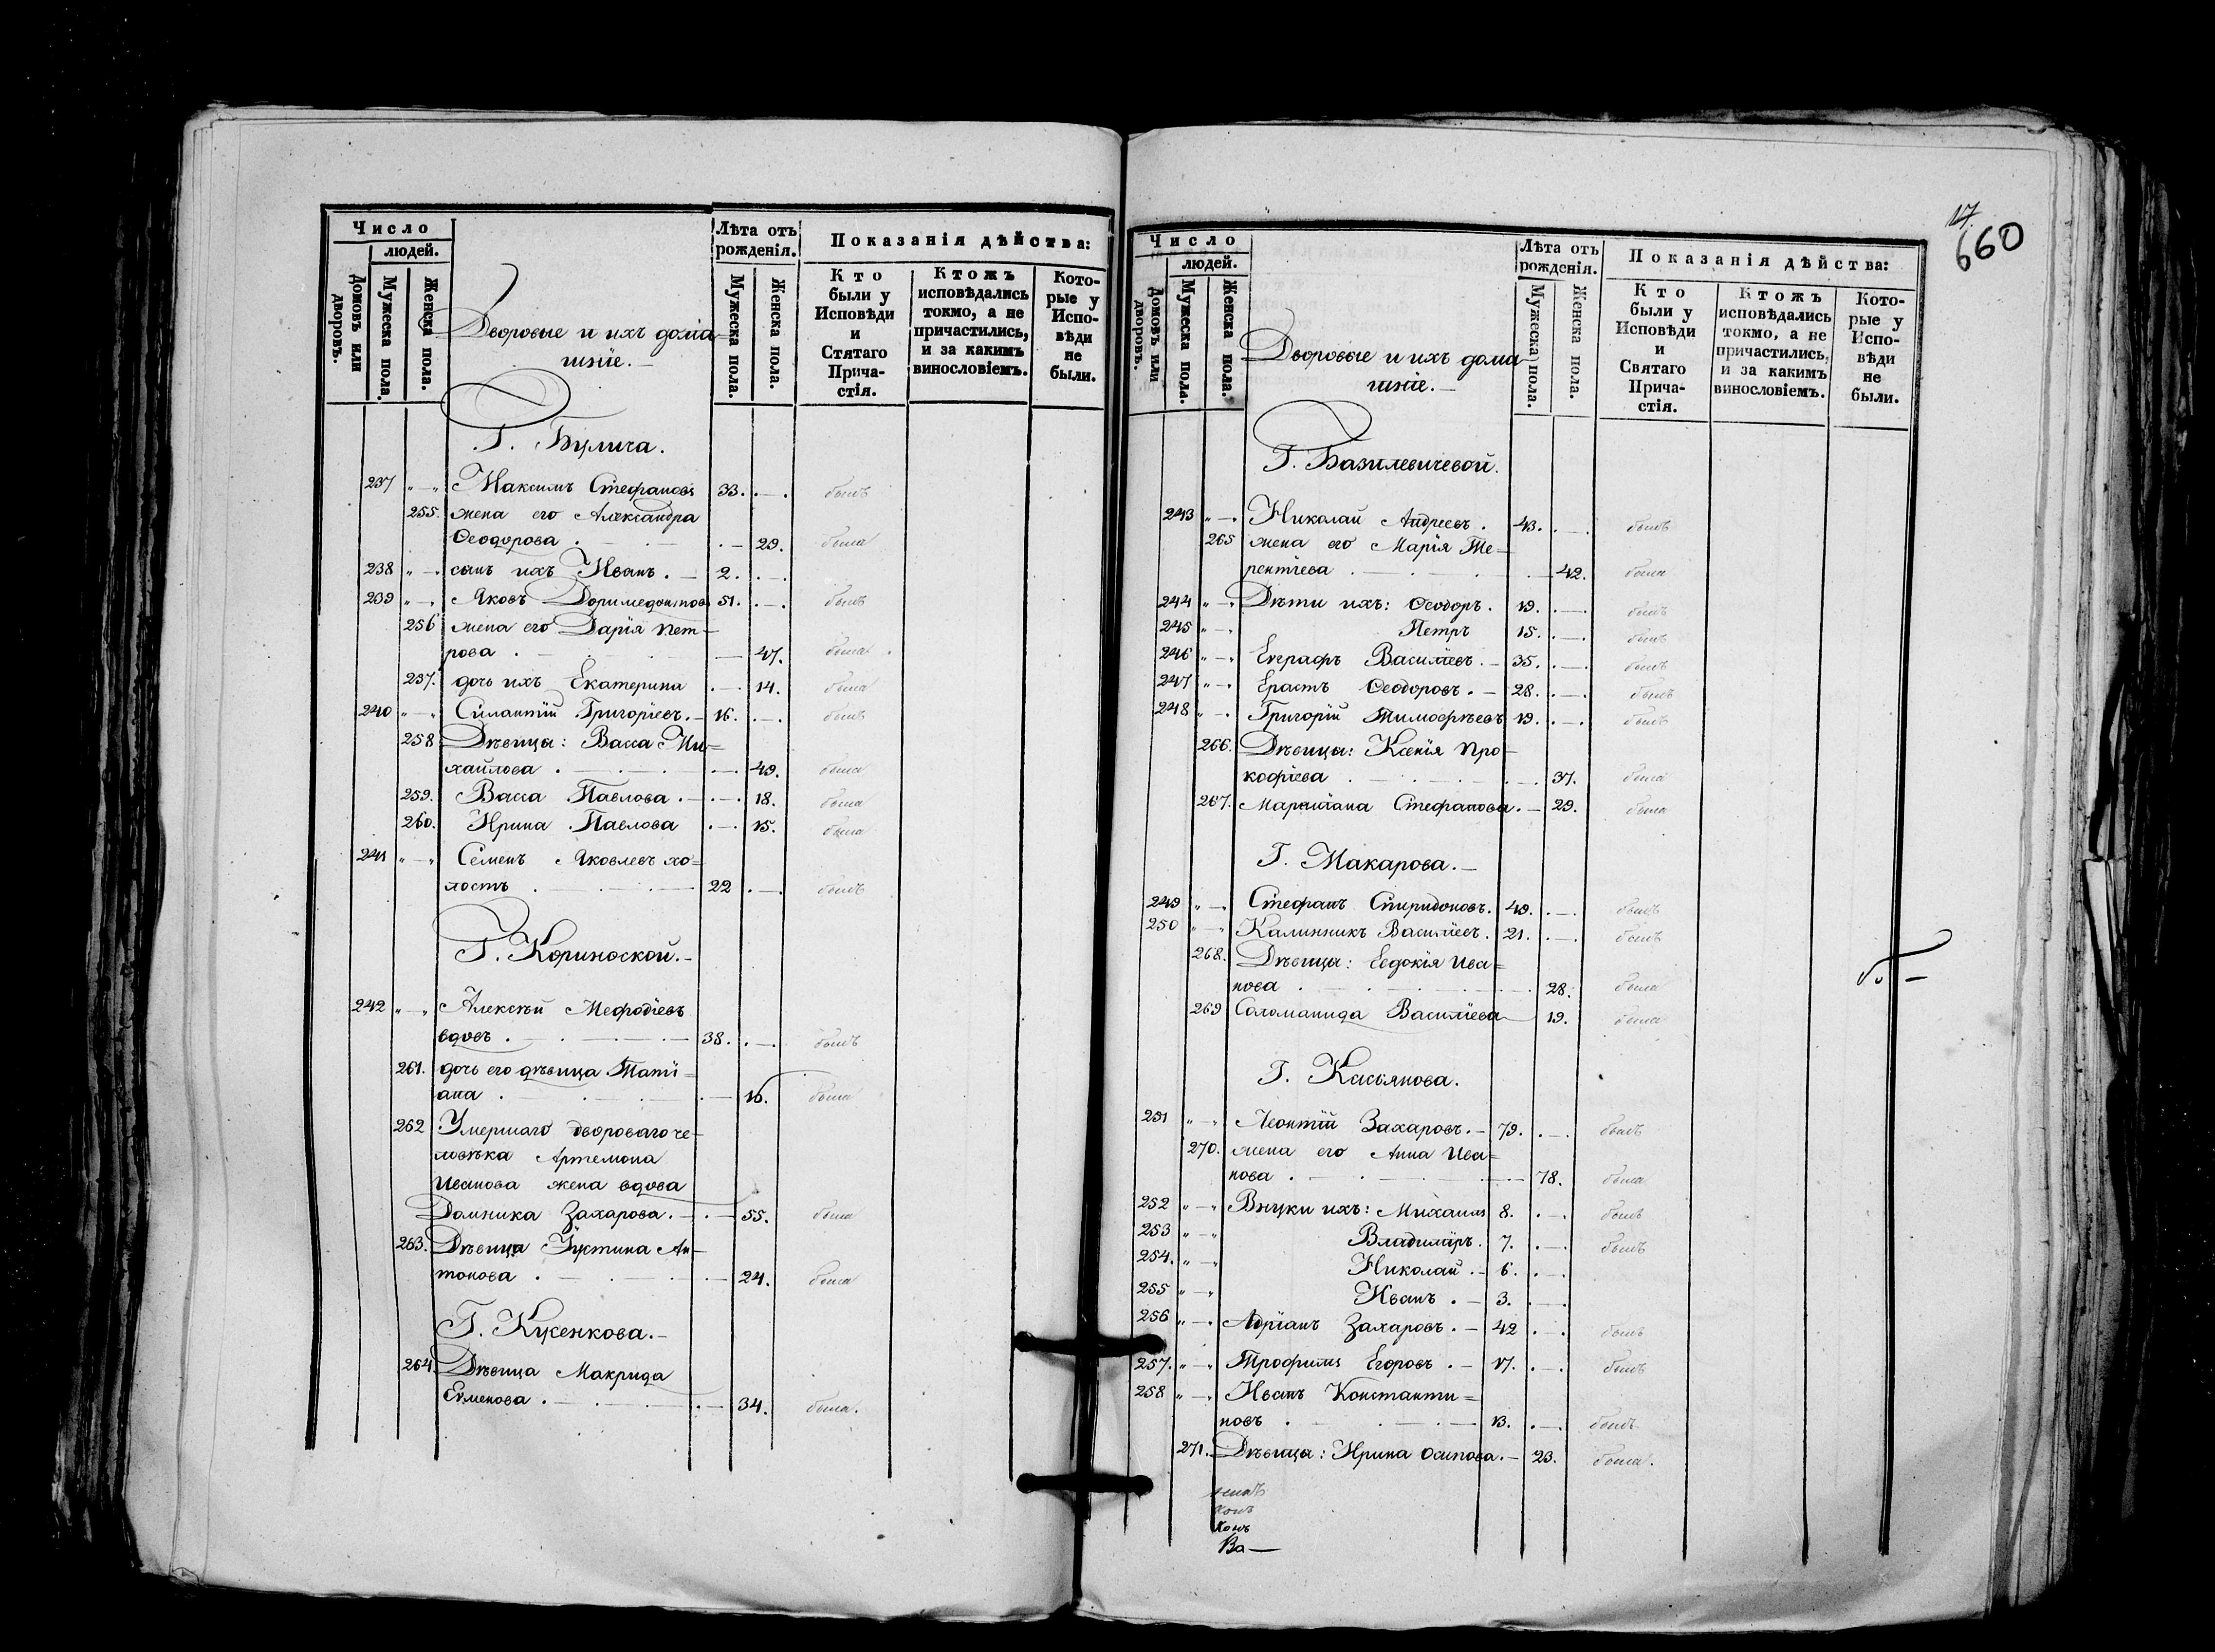 Число
людей.
Домовъ или дворовъ.
Мужеска пола.
Женска пола.
Дворовые и ихъ дома=
шніе.—
Лѣта отъ
рожденія.
Мужеска пола.
Женска пола.
Показанія дѣйства:
Кто
были у
Исповѣди
и
Стятаго
Прича-
стія.
Ктожъ
исповѣдались
токмо, а не
причастились,
и за какимъ
винословіемъ.
Кото-
рые у
Испо-
вѣди
не
были.
Г. Булича.
237 " — " Максимъ Стефановъ 33. . — . былъ
255. жена его Александра
Ѳеодорова . — . — 29. была
238 " — " сынъ ихъ Иванъ . — 2. . — .
239 " — " Яковъ Доримедонтовъ 51. . — . былъ
256 жена его Дарія Пет=
рова . — . — 47. была .
257. дочь ихъ Екатерина . — 14. была
240 " — " Силантій Григоріевъ. — 16. . — . былъ
258 Дѣвица: Васса Ми=
хайлова . — . — 49. была
259. Васса Павлова . — . — 18. была
260. Ирина Павлова . — 15. была
241 " — " Семенъ Яковлевъ хо=
лостъ . — . — 22 . — . былъ
Г. Кориноской.—
242 " — " Алексѣй Меѳодіевъ
вдовъ . — . — 38. . — . былъ
261. дочь его дѣвица Таті=
ана . — . — 16. была
262 Умершаго двороваго че=
ловѣка Артемона
Иванова жена вдова
Домника Захарова. — . — 55. была
263. Дѣвица Іустина Ан=
тонова . — . — 24. была
Г. Кукенкова.—
264 Дѣвица Макрида
Евменова . — . — 34. была.
17.
660
Число
людей.
Домовъ или дворовъ.
Мужеска пола.
Женска пола.
Дворовые и ихъ дома
шніе.—
Лѣта отъ
рожденія.
Мужеска пола.
Женска пола.
Показанія дѣйства:
Кто
были у
Исповѣди
и
Святаго
Прича-
стія.
Ктожъ
исповѣдались
токмо, а не
причастились,
и за какимъ
винословіемъ.
Кото-
рые у
Испо-
вѣди
не
были.
Г. Базилевичевой.
243 " — " Николай Андреевъ . 43. . — . былъ
265 жена его Марія Те=
рентіева . — . — 42. была
244 " — " Дѣти ихъ: Ѳеодоръ . 19. . — . былъ
245 " — " Петръ 15. . — . былъ
246 " — " Евграфъ Василіевъ . — 35. . — . былъ
247 " — " Ерастъ Ѳеодоровъ . — 28. . — . былъ
248 " — " Григорій Тимоѳѣевъ 19. . — . былъ
266. Дѣвица: Ксенія Про=
кофіева . — . — 37. была
267. Маріана Стефанова. — 29. была
Г. Макарова.—
249 " — " Стефанъ Спиридоновъ. 49. . — . былъ
250 " — " Калинникъ Василіевъ . 21. . — . былъ
268. Дѣвица: Евдокія Ива=
нова . — . — 28. была
269 Саломанида Василіева — 19. была
Г. Касьянова.
251 " — " Леонтій Захаровъ. — 79. . — . былъ
270. жена его Анна Ива=
нова . — . — 78. была
252 " — " Внуки ихъ: Михаилъ 8. . — . былъ
253 " — " Владиміръ. 7. . — . былъ
254. " — " Николай . — 6. . — .
255 " — " Иванъ . — 3. . — .
256 " — " Адріанъ Захаровъ . — 42 . — . былъ
257. " — " Трофимъ Егоровъ . — 17. . — . былъ
258 " — " Иванъ Константи=
новъ . — . — 13. . — . былъ
271. Дѣвица: Ирина Осипова. — 23. была.
Ва—